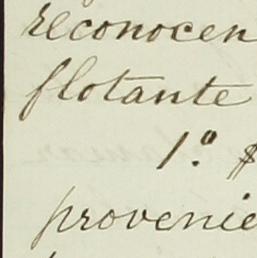 reconocen
flotante
1.º $
provenie